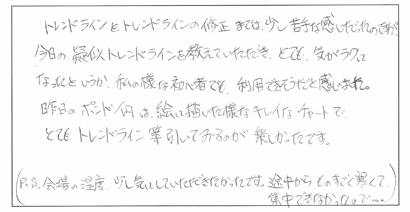 トレンドラインとトレンドラインの修正までは、少し苦手な感じだったのですが、
今日の、疑似トレンドラインを教えていただき、とても、気がラクに
なったというか、私の様な初心者でも、利用できそうだと感じました。
昨日のポンド/円は、絵に描いた様なキレイなチャートで、
とてもトレンドライン等引いてみるのが楽しかったです。
(P.S. 会場の温度、少し気にしていただきたかったです。途中からものすごく寒くて、
集中できなかったので…)